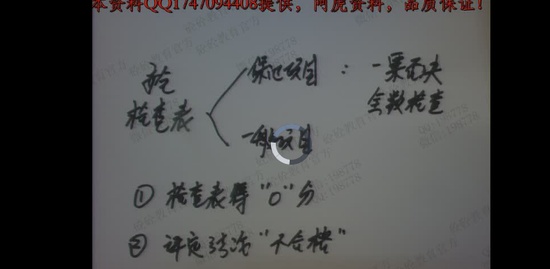 本资料QQ1747094408提供，网虎资料，品质保证！
检查表
保证项目：一票否决
全数检查
一般项目
① 检查表得“0”分
② 评定结论“不合格”